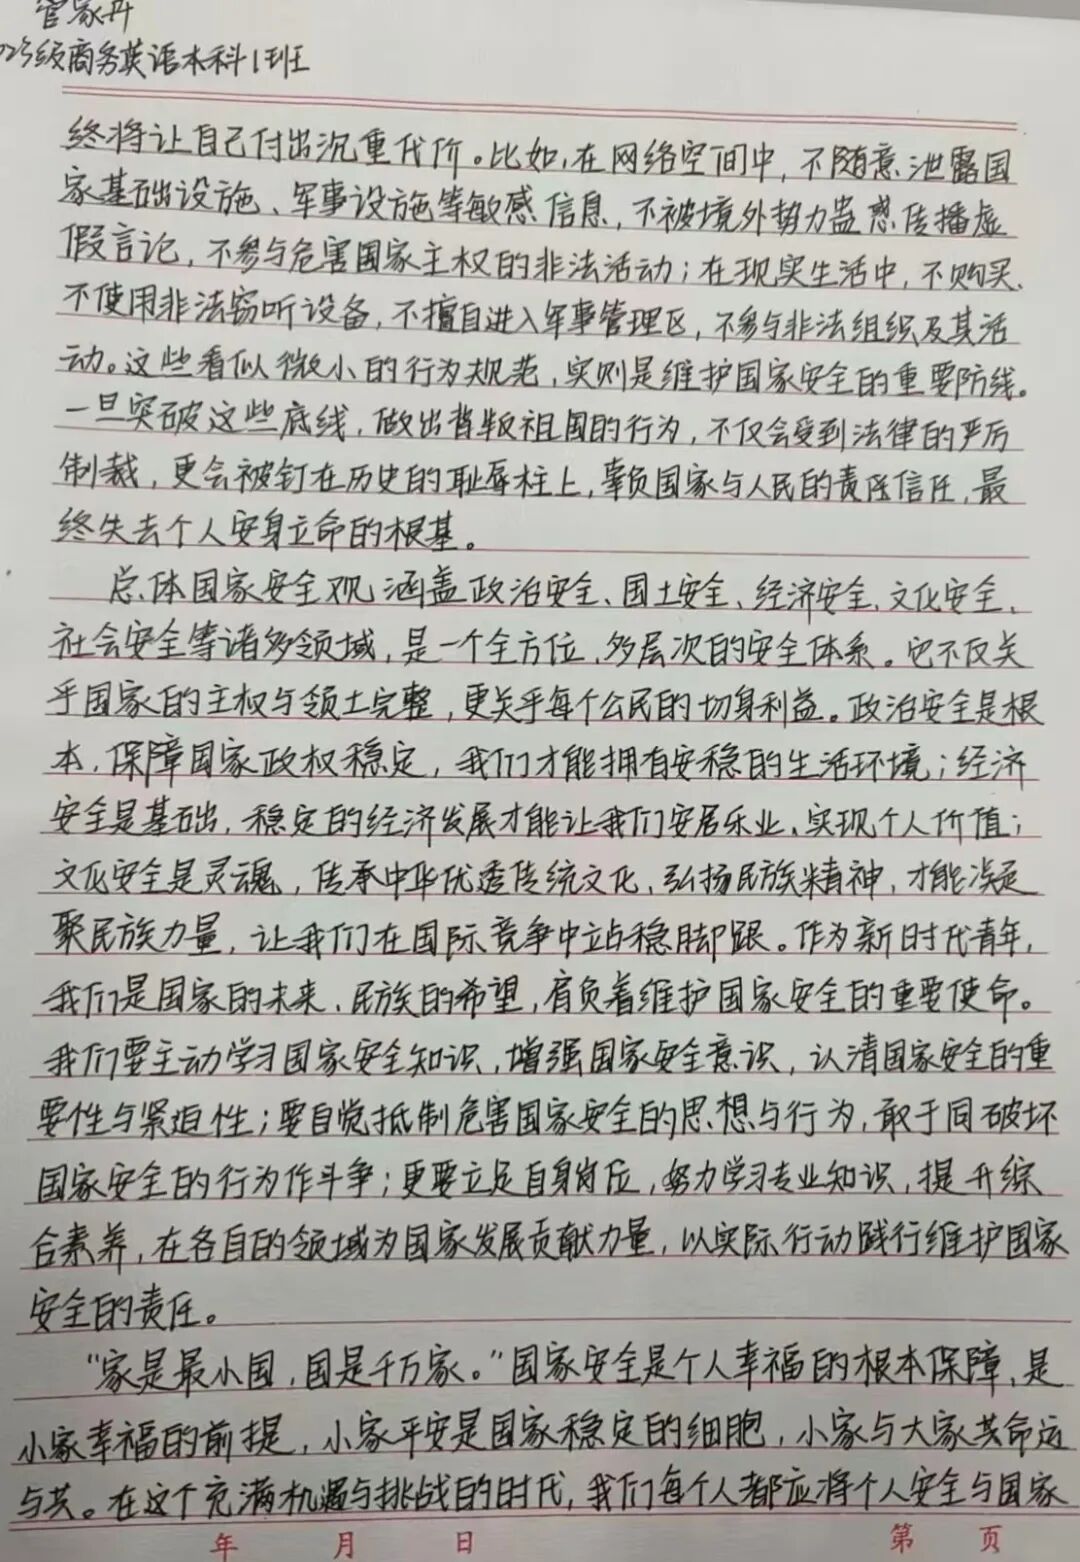 管家丹
023级商务英语本科1班
终将让自己付出沉重代价。比如,在网络空间中,不随意泄露国
家基础设施、军事设施等敏感信息,不被境外势力蛊惑传播虚
假言论,不参与危害国家主权的非法活动;在现实生活中,不购买、
不使用非法窃听设备,不擅自进入军事管理区,不参与非法组织及其活
动。这些看似微小的行为规范,实则是维护国家安全的重要防线。
一旦突破这些底线,做出背叛祖国的行为,不仅会受到法律的严厉
制裁,更会被钉在历史的耻辱柱上,辜负国家与人民的责任信任,最
终失去个人安身立命的根基。
总体国家安全观涵盖政治安全、国土安全、经济安全、文化安全、
社会安全等诸多领域,是一个全方位、多层次的安全体系。它不仅关
乎国家的主权与领土完整,更关乎每个公民的切身利益。政治安全是根
本,保障国家政权稳定,我们才能拥有安稳的生活环境;经济
安全是基础,稳定的经济发展才能让我们安居乐业、实现个人价值;
文化安全是灵魂,传承中华优秀传统文化,弘扬民族精神,才能凝
聚民族力量,让我们在国际竞争中站稳脚跟。作为新时代青年,
我们是国家的未来、民族的希望,肩负着维护国家安全的重要使命。
我们要主动学习国家安全知识,增强国家安全意识,认清国家安全的重
要性与紧迫性;要自觉抵制危害国家安全的思想与行为,敢于同破坏
国家安全的行为作斗争;更要立足自身岗位,努力学习专业知识,提升综
合素养,在各自的领域为国家发展贡献力量,以实际行动践行维护国家
安全的责任。
“家是最小国,国是千万家。”国家安全是个人幸福的根本保障,是
小家幸福的前提,小家平安是国家稳定的细胞,小家与大家共命运
与共。在这个充满机遇与挑战的时代,我们每个人都应将个人安全与国家
年 月 日 第 页